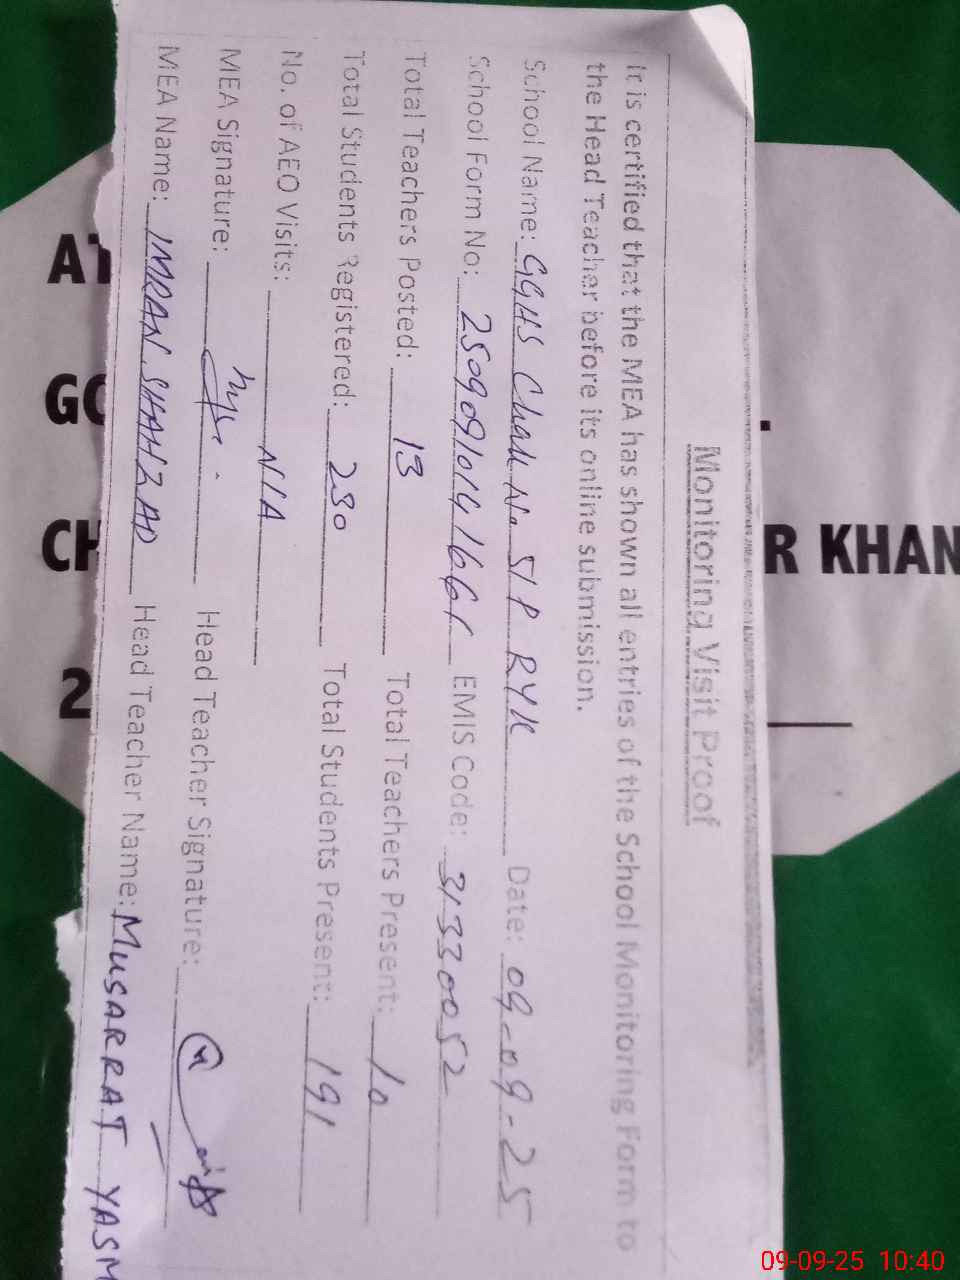 Monitoring Visit Proof
It is certified that the MEA has shown all entries of the School Monitoring Form to
the Head Teacher before its online submission.
School Name: GGHS Chak No 51 P RYK Date: 09-09-25
School Form No: EMIS Code: 31330052
Total Teachers Posted: 13 Total Teachers Present: 10
Total Students Registered: 230 Total Students Present: 191
No. of AEO Visits: N/A
MEA Signature: Head Teacher Signature:
MEA Name: IMRAN SHAHZAD Head Teacher Name: MUSARRAT YASM
AT
GO
CH R KHAN
2
09-09-25 10:40